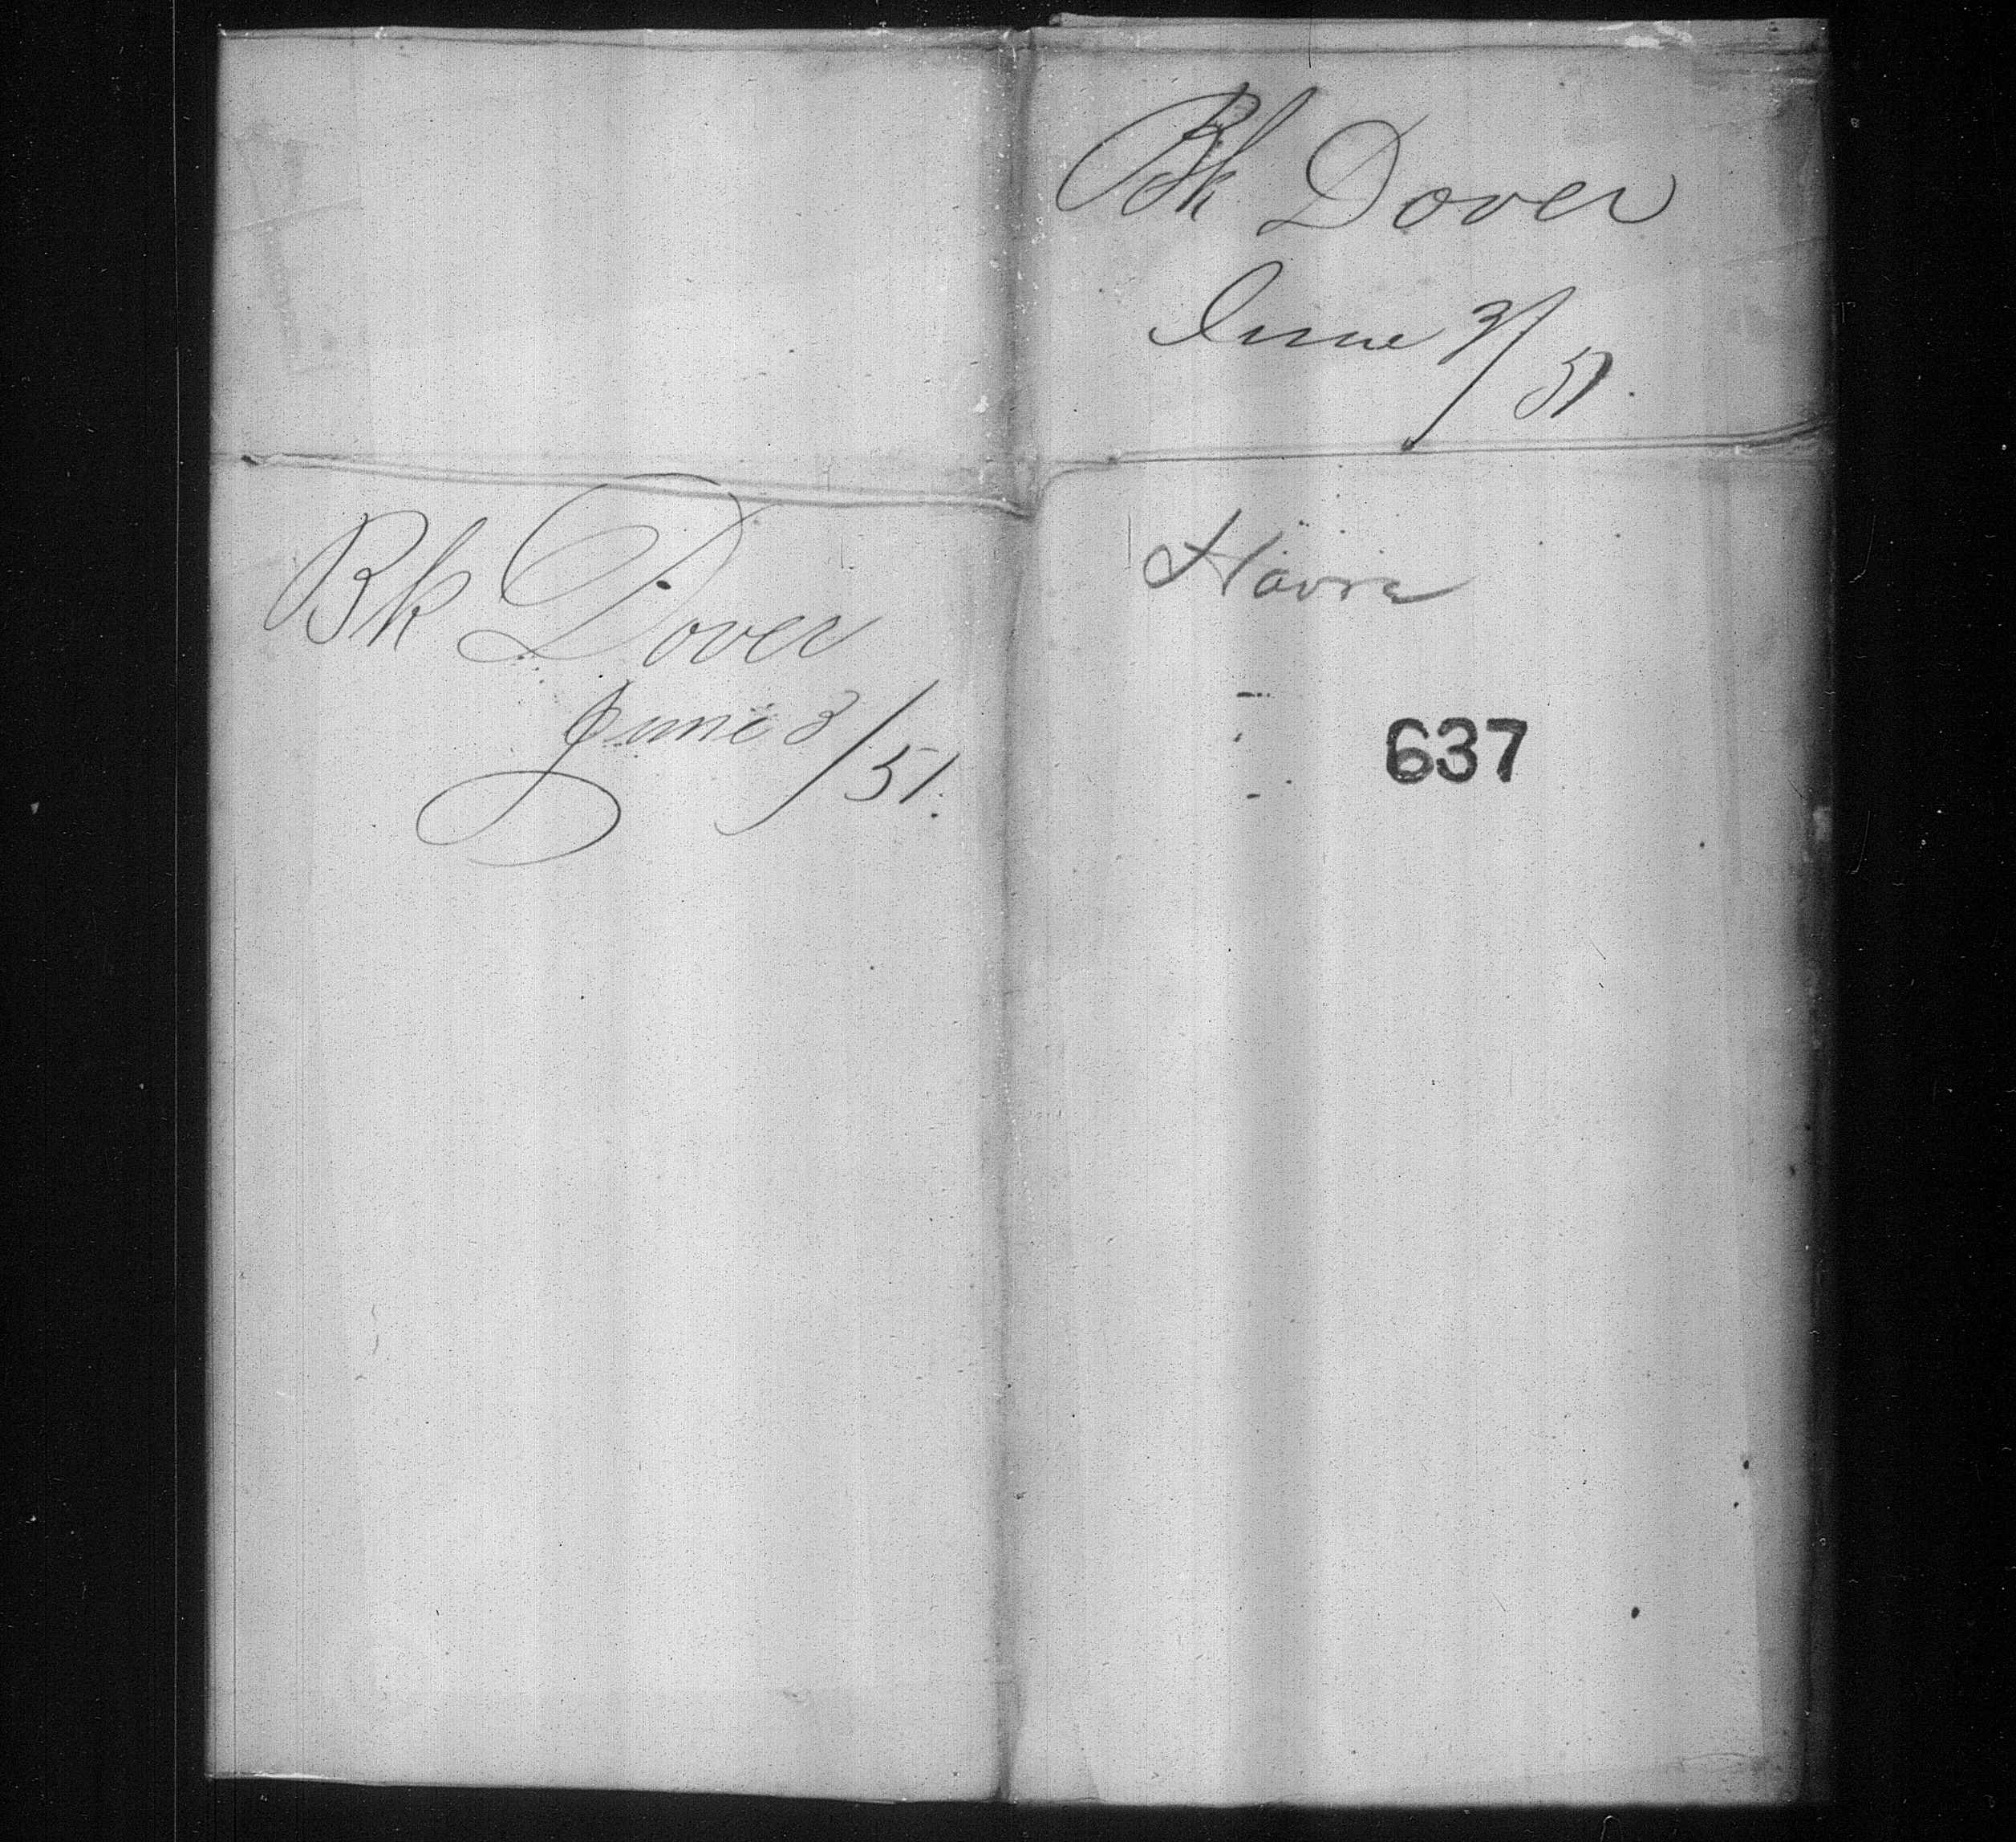 Bk Dover
June 3/51.
Bk Dover
June 3/51.
Havre
637